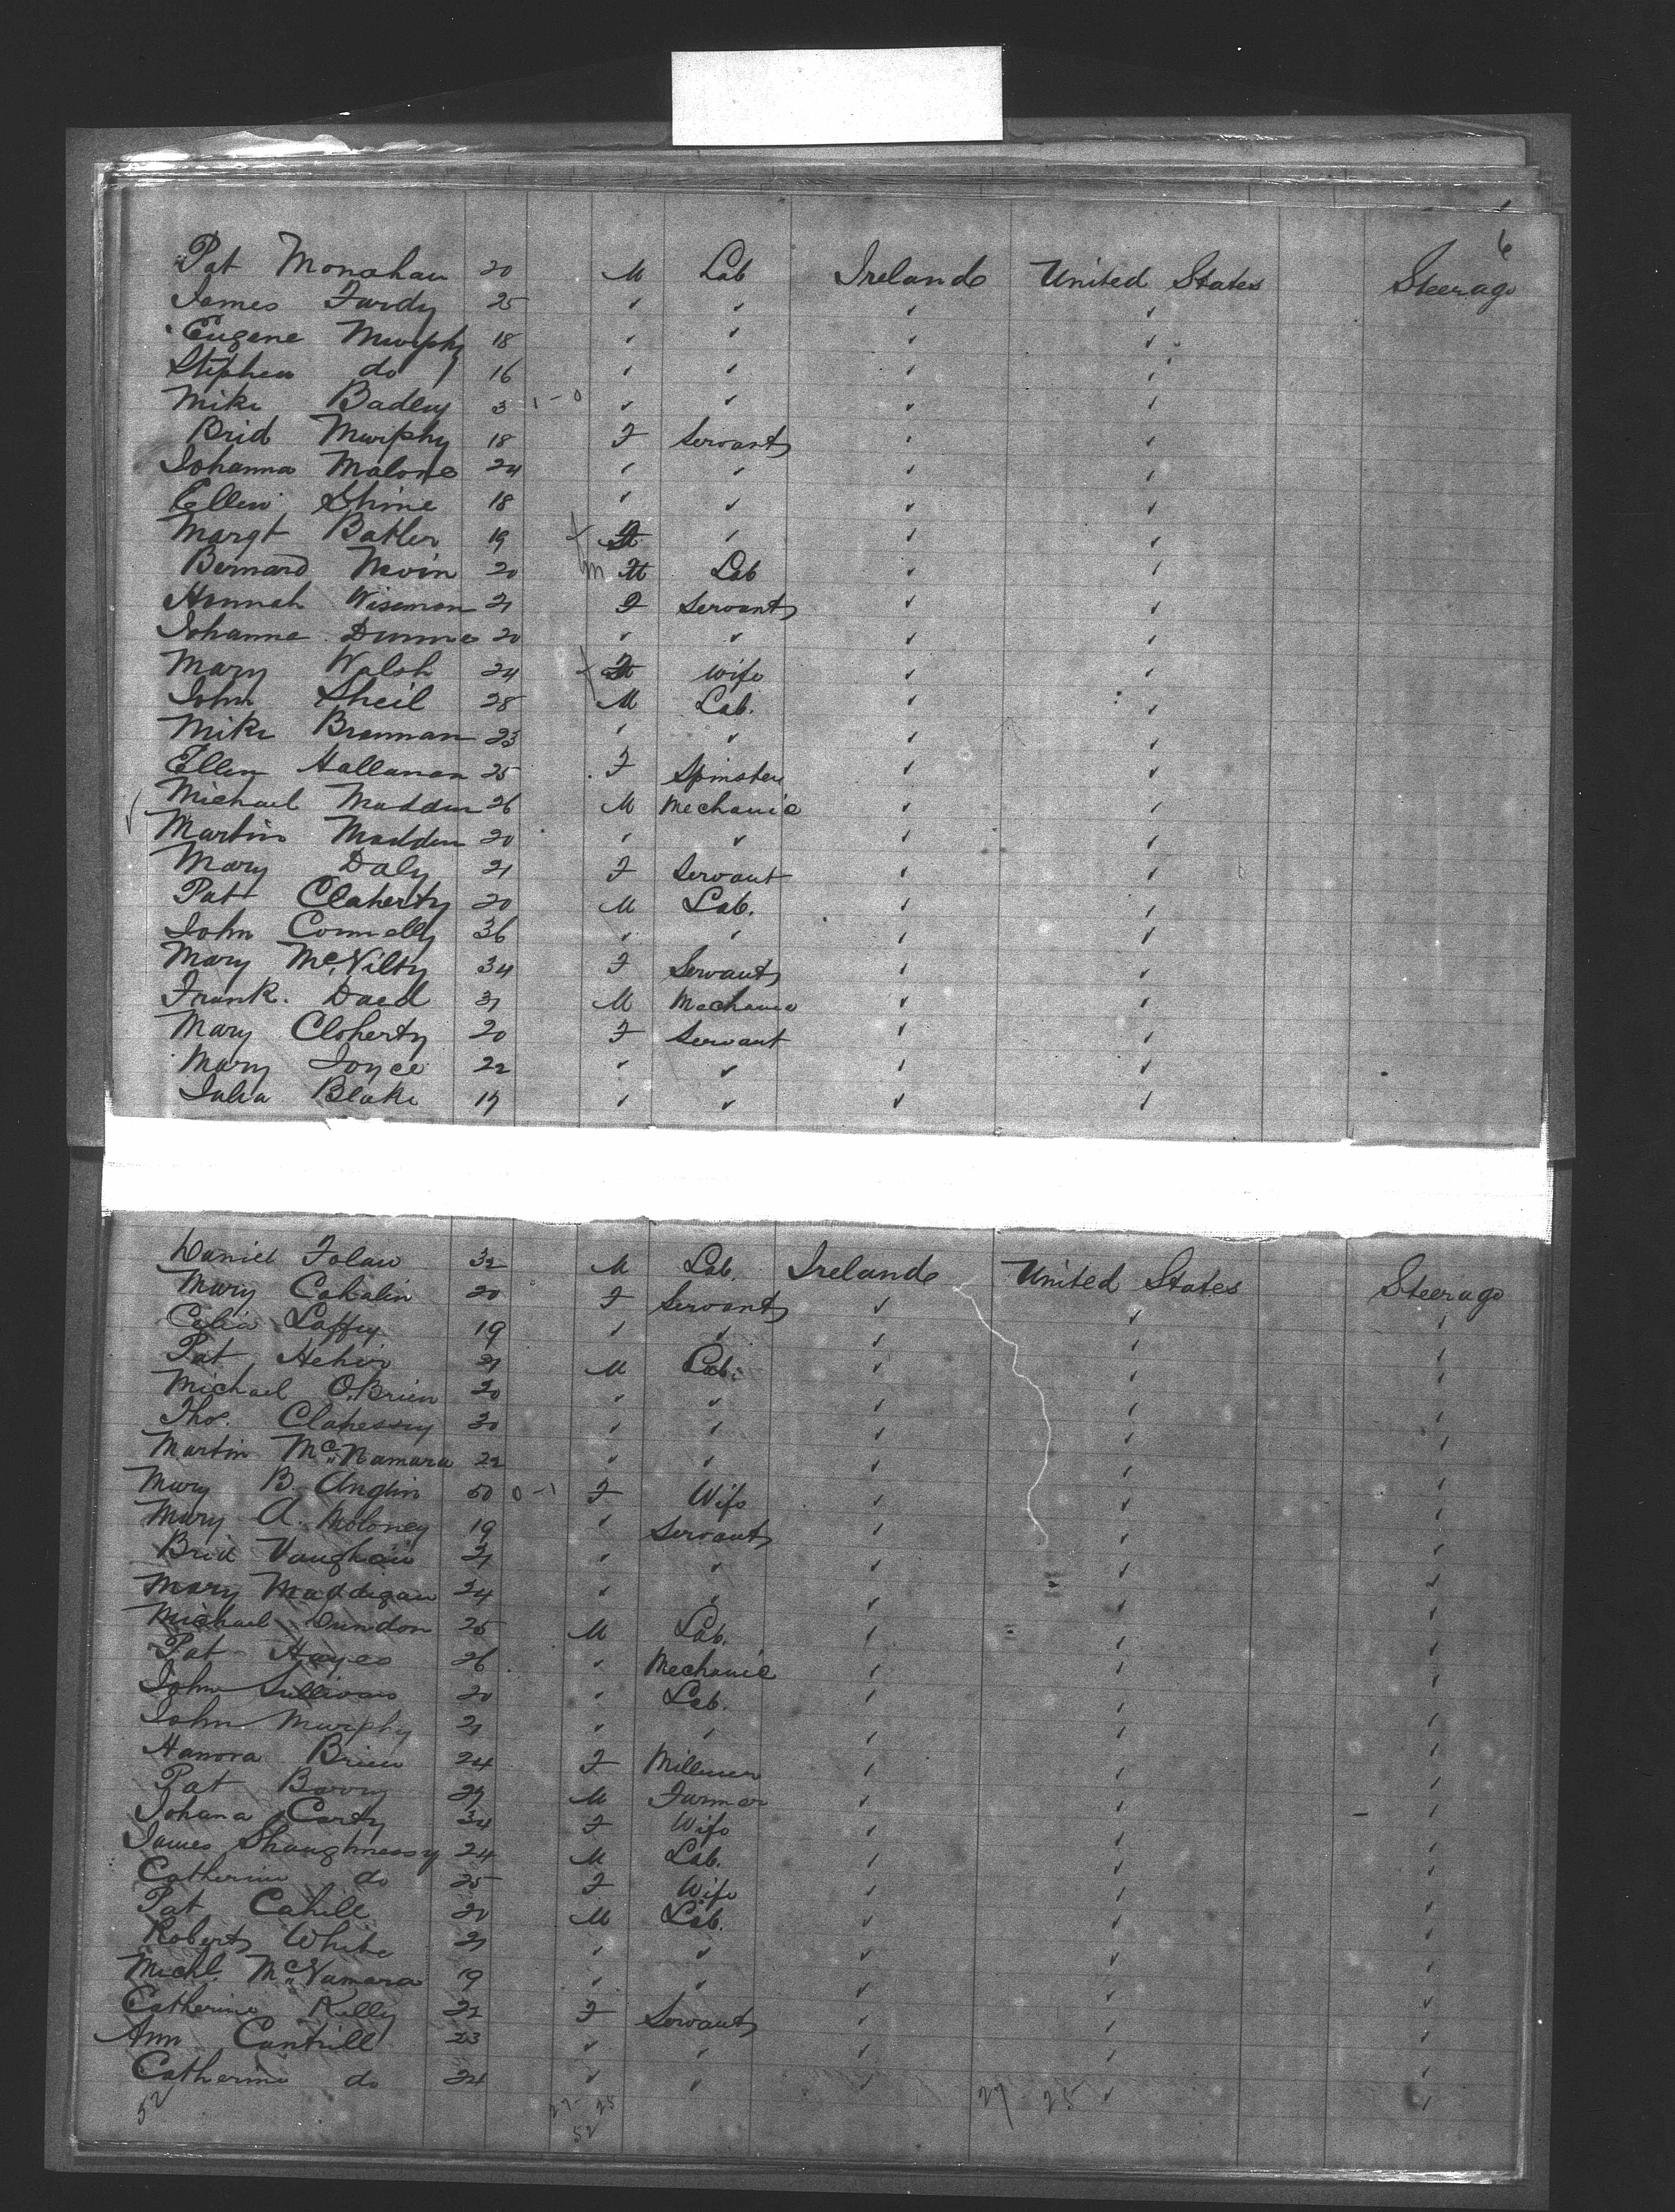 6
Pat Monahan 20 M Lab Ireland United States Steerage
James Furdy 25 " " " "
Eugene Murphy 18 " " " "
Stephen do 16 " " " "
Mike Badley 3 1-0 " " " "
Brid Murphy 18 F Servant " "
Johanna Malone 24 " " " "
Ellen Shine 18 " " " "
Margt Butler 19 F " " "
Bernard Nevin 20 M Lab " "
Hannah Wiseman 21 F Servant " "
Johanna Dunne 20 " " " "
Mary Walsh 24 F Wife " "
John Sheil 28 M Lab. " "
Mike Brennan 23 " " " "
Ellen Hallanan 25 F Spinster " "
Michael Madden 26 M Mechanic " "
Martin Madden 20 " " " "
Mary Daly 21 F Servant " "
Pat Claherty 20 M Lab. " "
John Connelly 36 " " " "
Mary McNilty 34 F Servant " "
Frank. Daed 31 M Mechanic " "
Mary Cloherty 20 F Servant " "
Mary Joyce 22 " " " "
Julia Blake 17 " " " "
Daniel Folan 32 M Lab. Ireland United States Steerage
Mary Cahalin 20 F Servant " " "
Celia Laffey 19 " " " " "
Pat Hehir 21 M Lab. " " "
Michael O'Brien 20 " " " " "
Thos. Clahessy 30 " " " " "
Martin McNamara 22 " " " " "
Mary B. Anglin 50 0-1 F Wife " " "
Mary A. Moloney 19 " Servant " " "
Brid Vaughan 21 " " " " "
Mary Maddigan 24 " " " " "
Michael Dundon 25 M Lab. " " "
Pat Hayes 26 " Mechanic " " "
John Sullivan 20 " Lab. " " "
John Murphy 21 " " " " "
Hanora Brien 24 F Milliner " " "
Pat Barry 27 M Farmer " " "
Johana Carty 34 F Wife " " "
James Shaughnessy 24 M Lab. " " "
Catherine do 25 F Wife " " "
Pat Cahill 20 M Lab. " " "
Robert White 21 " " " " "
Michl. McNamara 19 " " " " "
Catherine Kelly 22 F Servant " " "
Ann Cantrill 23 " " " " "
Catherine do 24 " " " " "
52 27-25 27-25
52